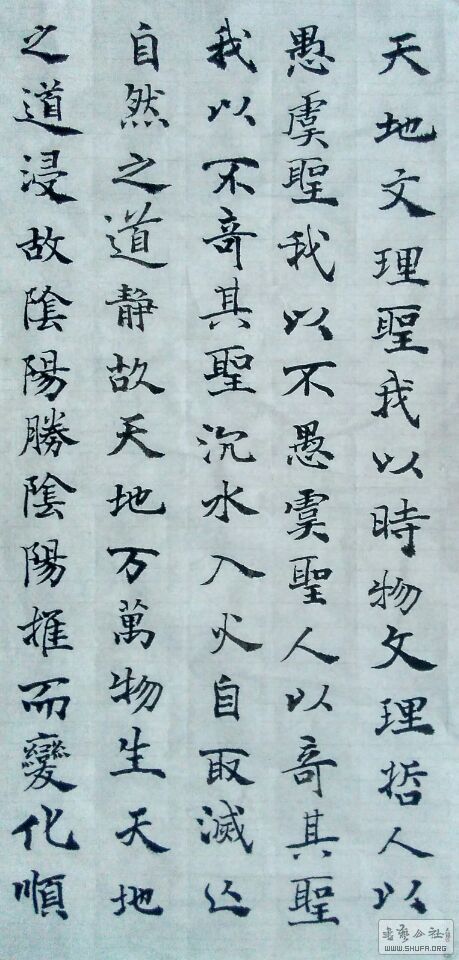 天地文理聖我以時物文理哲人以
愚虞聖我以不愚虞聖人以奇其聖
我以不奇其聖沉水入火自取滅亡
自然之道静故天地万萬物生天地
之道浸故陰陽勝陰陽推而變化順
WWW.SHUFA.ORG